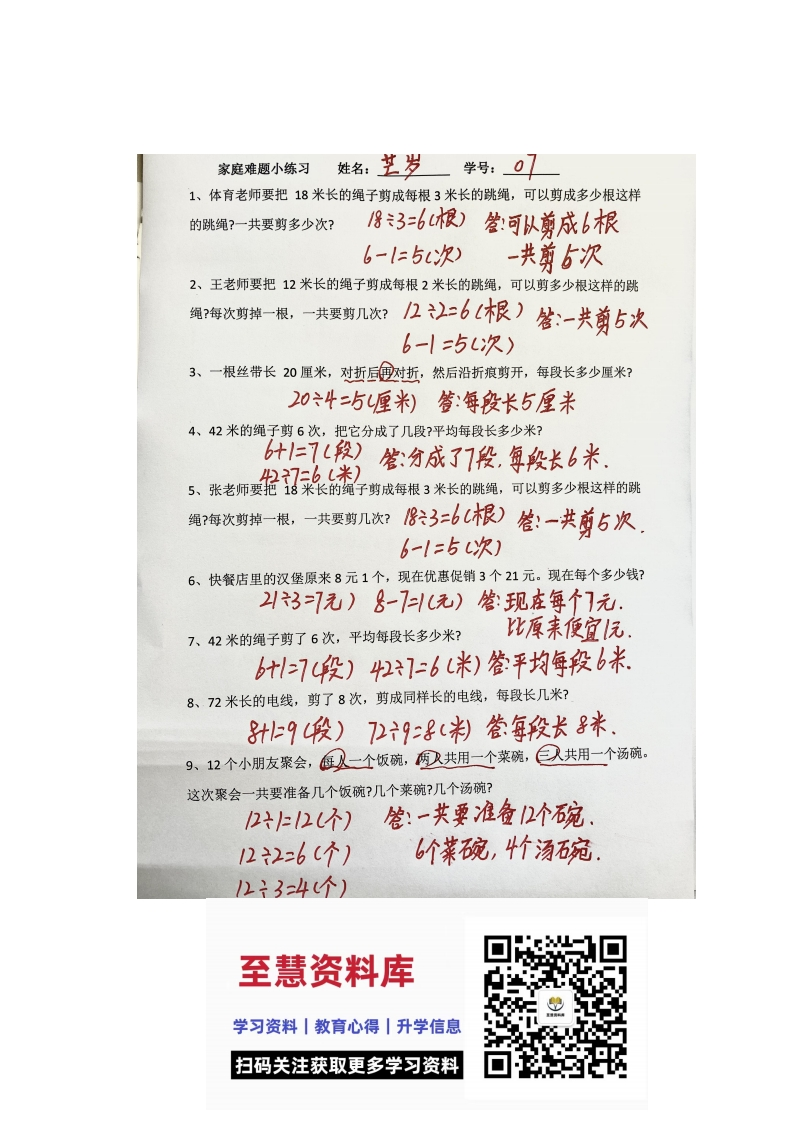 家庭难题小练习 姓名：芒岁 学号：07
1、体育老师要把 18 米长的绳子剪成每根 3 米长的跳绳，可以剪成多少根这样
的跳绳?一共要剪多少次? 18÷3=6(根) 答:可以剪成6根
6-1=5(次) 一共剪5次
2、王老师要把 12 米长的绳子剪成每根 2 米长的跳绳，可以剪多少根这样的跳
绳?每次剪掉一根，一共要剪几次? 12÷2=6(根) 答:一共剪5次
6-1=5(次)
3、一根丝带长 20 厘米，对折后再对折，然后沿折痕剪开，每段长多少厘米?
20÷4=5(厘米) 答:每段长5厘米
4、42 米的绳子剪 6 次，把它分成了几段?平均每段长多少米?
6+1=7(段) 答:分成了7段,每段长6米.
42÷7=6(米)
5、张老师要把 18 米长的绳子剪成每根 3 米长的跳绳，可以剪多少根这样的跳
绳?每次剪掉一根，一共要剪几次? 18÷3=6(根) 答:一共剪5次.
6-1=5(次)
6、快餐店里的汉堡原来 8 元 1 个，现在优惠促销 3 个 21 元。现在每个多少钱?
21÷3=7元) 8-7=1(元) 答:现在每个7元.
比原来便宜1元.
7、42 米的绳子剪了 6 次，平均每段长多少米?
6+1=7(段) 42÷7=6(米) 答:平均每段6米.
8、72 米长的电线，剪了 8 次，剪成同样长的电线，每段长几米?
8+1=9(段) 72÷9=8(米) 答:每段长8米.
9、12 个小朋友聚会，每人一个饭碗，两人共用一个菜碗，三人共用一个汤碗。
这次聚会一共要准备几个饭碗?几个菜碗?几个汤碗?
12÷1=12(个) 答:一共要准备12个碗.
12÷2=6(个) 6个菜碗,4个汤碗.
12÷3=4(个)
至慧资料库
学习资料｜教育心得｜升学信息
扫码关注获取更多学习资料
至慧资料库